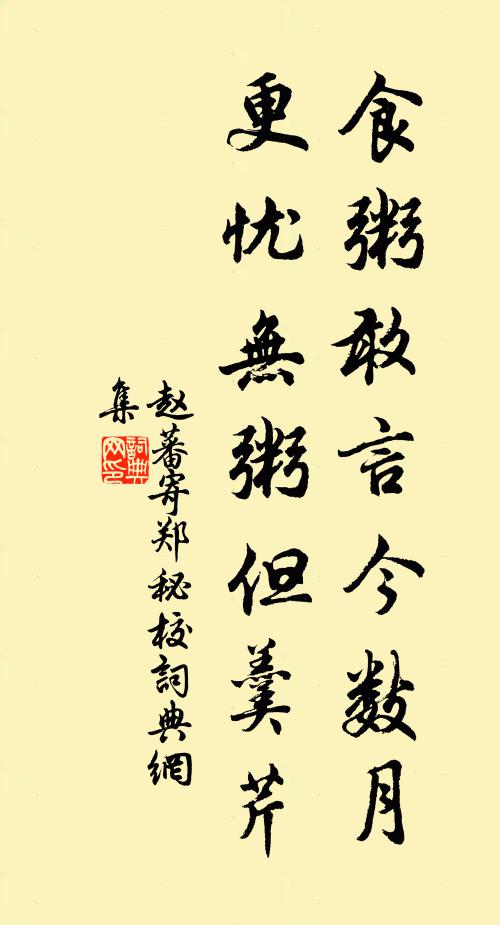 食粥敢言今数月
更忧無粥但羹芹
赵蕃寄郑秘校詞典網
集
詞典
网印